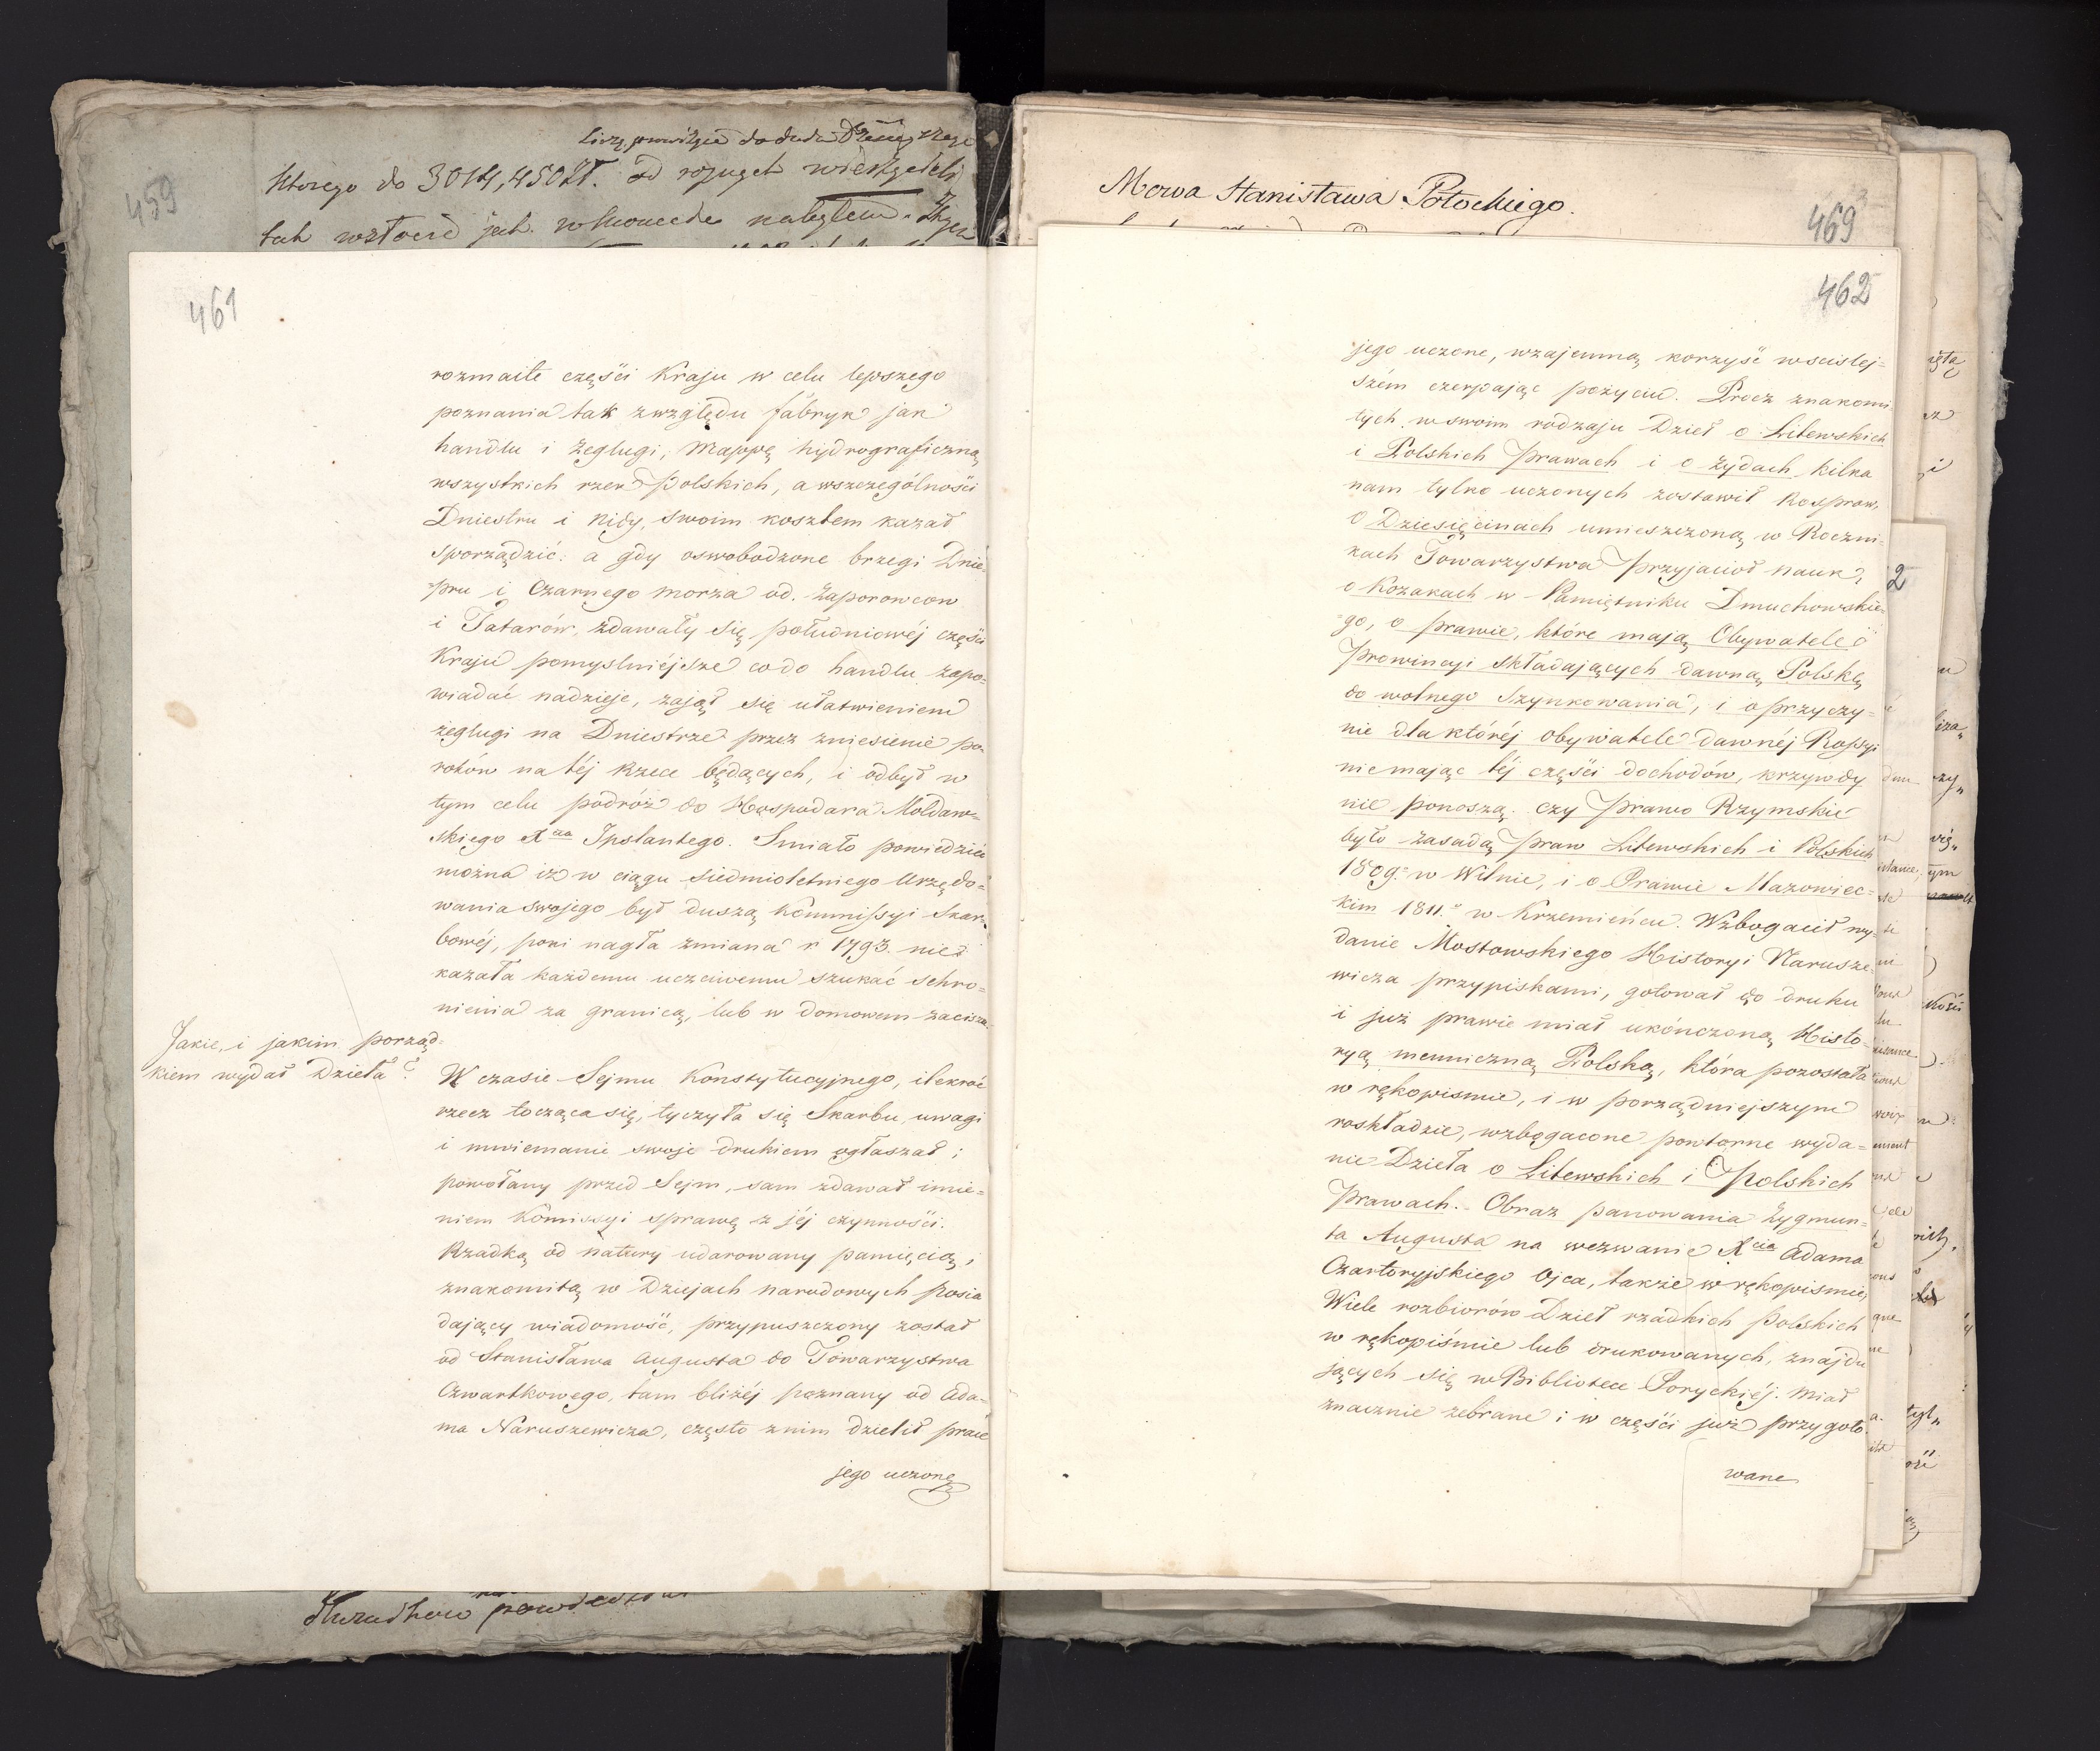 459
do duda
którego do 3014,450 Zł. od
tak jak nabyłem.
461
rozmaite części Kraju w celu lepszego
poznania tak zwzględu fabryk jak
handlu i żeglugi, Mappę hydrograficzną
wszystkich rzek Polskich, a wszczególności
Dniestru i Nidy, swoim kosztem kazał
sporządzić: a gdy oswobodzone brzegi Dnie-
=pru i Czarnego morza od Zaporowcow
i Tatarów, zdawały się południowéj części
Kraju pomyslniéjsze codo handlu zapo=
wiadać nadzieje, zajął się ułatwieniem
żeglugi na Dniestrze przez zniesienie po-
rohów na téj Rzece będących, i odbył w
tym celu podróż do Hospodara Mołdaw=
skiego Xcia Ipslantego. Smiało powiedzieć
można iż w ciągu siedmioletniego Urzędo=
wania swojego był duszą Kommissyi Skar=
bowéj, poki nagła zmiana r 1793. nie
kazała każdemu uczciwemu szukać schro=
nienia za granicą, lub w domowem zaciszu.
Jakie, i jakim porząd=
kiem wydał Dzieła?
W czasie Sejmu Konstytucyjnego, ilekroć
rzecz tocząca się, tyczyła się Skarbu, uwagi
i mniemanie swoje drukiem ogłaszał;
powołany przed Sejm, sam zdawał imie=
niem Kommissyi sprawę z jéj czynności.
Rzadką od natury udarowany pamięcią, i
znakomitą w Dziejach narodowych posia
dający wiadomość, przypuszczony został
od Stanisława Augusta do Towarzystwa
Czwartkowego, tam bliżéj poznany od Ada-
ma Naruszewicza, często znim dzielił prace
jego uczone
powiedział
Mowa Stanisława Potockiego.
469
462
jego uczone, wzajemną korzyść wscislej=
szém czerpając pożyciu. Procz znakomi=
tych w swoim rodzaju Dzieł o Litewskich
i Polskich Prawach i o Żydach kilka
nam tylko uczonych zostawił Rospraw,
O Dziesięcinach umieszczoną w Roczni-
kach Towarzystwa Przyjaciół nauk,
o Kozakach w Pamiętniku Dmuchowskie-
=go, o prawie, które mają Obywatele
Prowincyi składających dawną Polskę
do wolnego Szynkowania, i o przyczy=
nie dla któréj obywatele dawnéj Rossyi
niemając téj części dochodów, krzywdy
nie ponoszą. czy Prawo Rzymskie
było zasadą Praw Litewskich i Polskich
1809. w Wilnie, i o Prawie Mazowiec=
kim 1811. w Krzemieńcu. Wzbogacił wy-
danie Mostowskiego Historyi Narusze-
wicza przypiskami, gotował do druku
i już prawie miał ukończoną Histo=
ryą menniczną Polską, która pozostała
w rękopismie, i w porządniejszym
roskładzie, wzbogacone powtorne wyda=
nie Dzieła o Litewskich i Polskich
Prawach. Obraz panowania Zygmun=
ta Augusta na wezwanie Xcia Adama
Czartoryjskiego Ojca, także w rękopismie,
Wiele rozbiorów Dzieł rzadkich Polskich
w rękopiśmie lub drukowanych, znajdu
jących się w Bibliotece Poryckiéj. Miał
znacznie zebrane i w części już przygoto-
wane